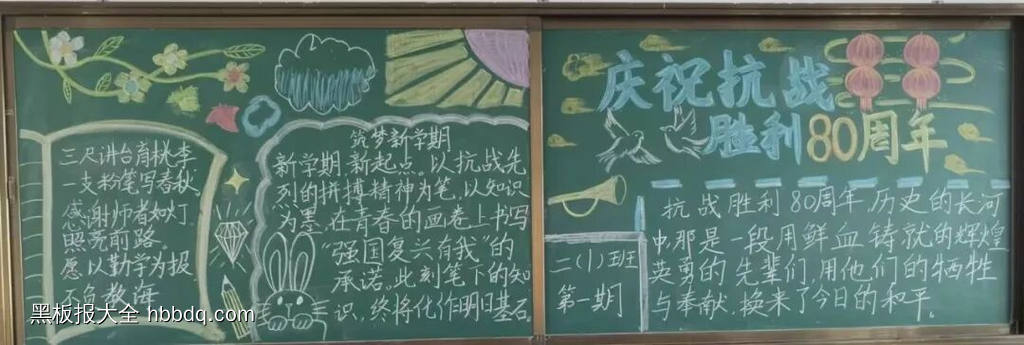 三尺讲台育桃李
一支粉笔写春秋
感谢师者如灯
照亮前路
愿以勤学为报
不负教海
筑梦新学期
新学期,新起点。以抗战先
烈的拼搏精神为笔,以知识
为墨,在青春的画卷上书写
“强国复兴有我”的
承诺。此刻笔下的知
识,终将化作明日基石
庆祝抗战
胜利80周年
抗战胜利80周年,历史的长河
中那是一段用鲜血铸就的辉煌
英勇的先辈们,用他们的牺牲
与奉献,换来了今日的和平。
二(1)班
第一期
黑板报大全 hbbdq.com